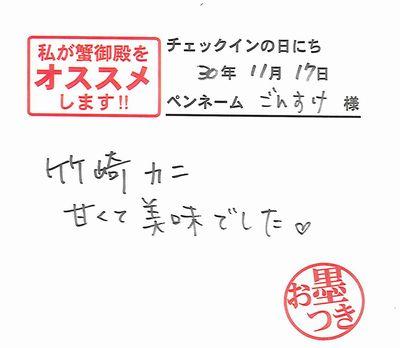 私が蟹御殿を
オススメ
します!!
チェックインの日にち
30年 11月 17日
ペンネーム ごんすけ 様
竹崎カニ
甘くて美味でした♡
お墨つき